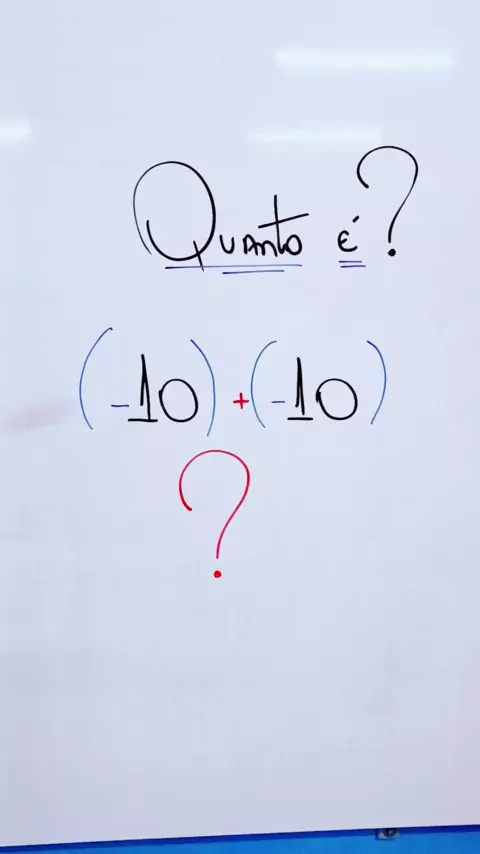 Quanto é?
(-10) + (-10)
?